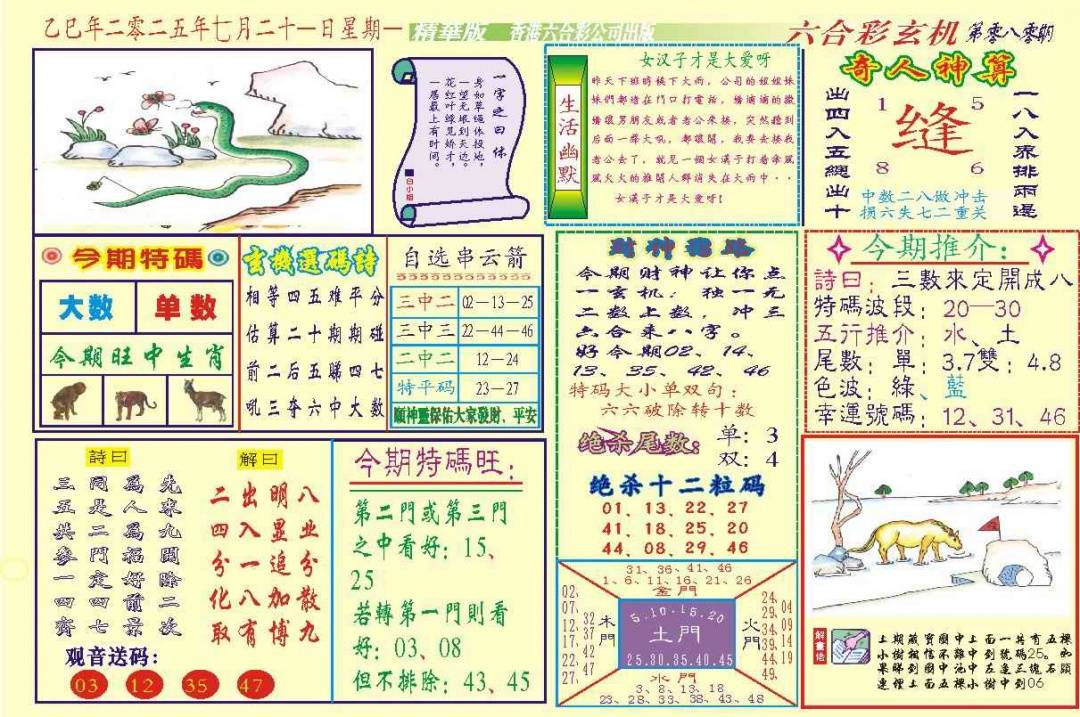 乙巳年二零二五年七月二十一日星期一
精華版
香港六合彩公司出版
六合彩玄机
第零八零期
一字之曰 休
身如草绳休投地，
一望无垠到天边。
花红叶绿见娇才，
一居最上有时间。
白小姐
生活幽默
女汉子才是大爱呀
昨天下班時候下大雨，公司的姐姐妹
妹們都堵在門口打電話，嬌滴滴的撒
嬌讓男朋友或者老公來接，突然聽到
后面一聲大吼，都讓開，我要去接我
老公去了，就見一個女漢子打着傘風
風火火的推開人群消失在大雨中··
女漢子才是大爱呀！
奇人神算
出四入五總出十
1 5
缝
8 6
中数二八做冲击
损六失七二重关
一八入来排兩邊
今期特碼
大数
单数
今期旺中生肖
玄機選碼詩
相等四五难平分
估算二十期期碰
前二后五睇四七
吼三夺六中大数
自选串云箭
三中二 02—13—25
三中三 22—44—46
二中二 12—24
特平码 23—27
顺神靈保佑大家發財、平安
今期财神让你点
一玄机：独一无
二数上数，冲三
六合来八字。
好今期02、14、
13、35、42、46
特码大小单双句：
六六破除转十数
绝杀尾数：
单：3
双：4
绝杀十二粒码
01、13、22、27
41、18、25、20
44、08、29、46
今期推介：
詩曰：三數來定開成八
特碼波段：20—30
五行推介：水、土
尾數：單：3.7雙：4.8
色波：綠、藍
幸運號碼：12、31、46
詩曰
三同爲先
五是人來
共二爲九
參門招開
一定好除
四四前二
齊七景次
解曰
二出明八
四入显业
分一追分
化八加散
取有博九
观音送码：
03 12 35 47
今期特碼旺：
第二門或第三門
之中看好：15、
25
若轉第一門則看
好：03、08
但不排除：43、45
31、36、41、46
1、6、11、16、21、26
金門
02、07、12、17、22、27、
32
37
42
47
木門
5.10.15.20
土門
25.30.35.40.45
火門
24、29、34、39、44、49、
04
09
14
19
水門
3、8、13、18
23、28、33、38、43、48
解畫佬
上期藏寶圖中上面一共有五棵
小樹相信不難中到號码25。如
果睇到圖中池中左邊三塊石頭
連埋上面五棵小樹中到06